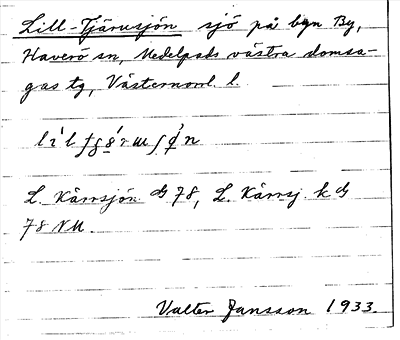 Lill-Tjärnsjön sjö på bgn By,
Haverö sn, Medelpads västra domsa-
gas tg, Västernorrl. l.
L. Kärrsjön ds 78, L. Kärrsj. k ds
78 NM.
Valter Jansson 1933.